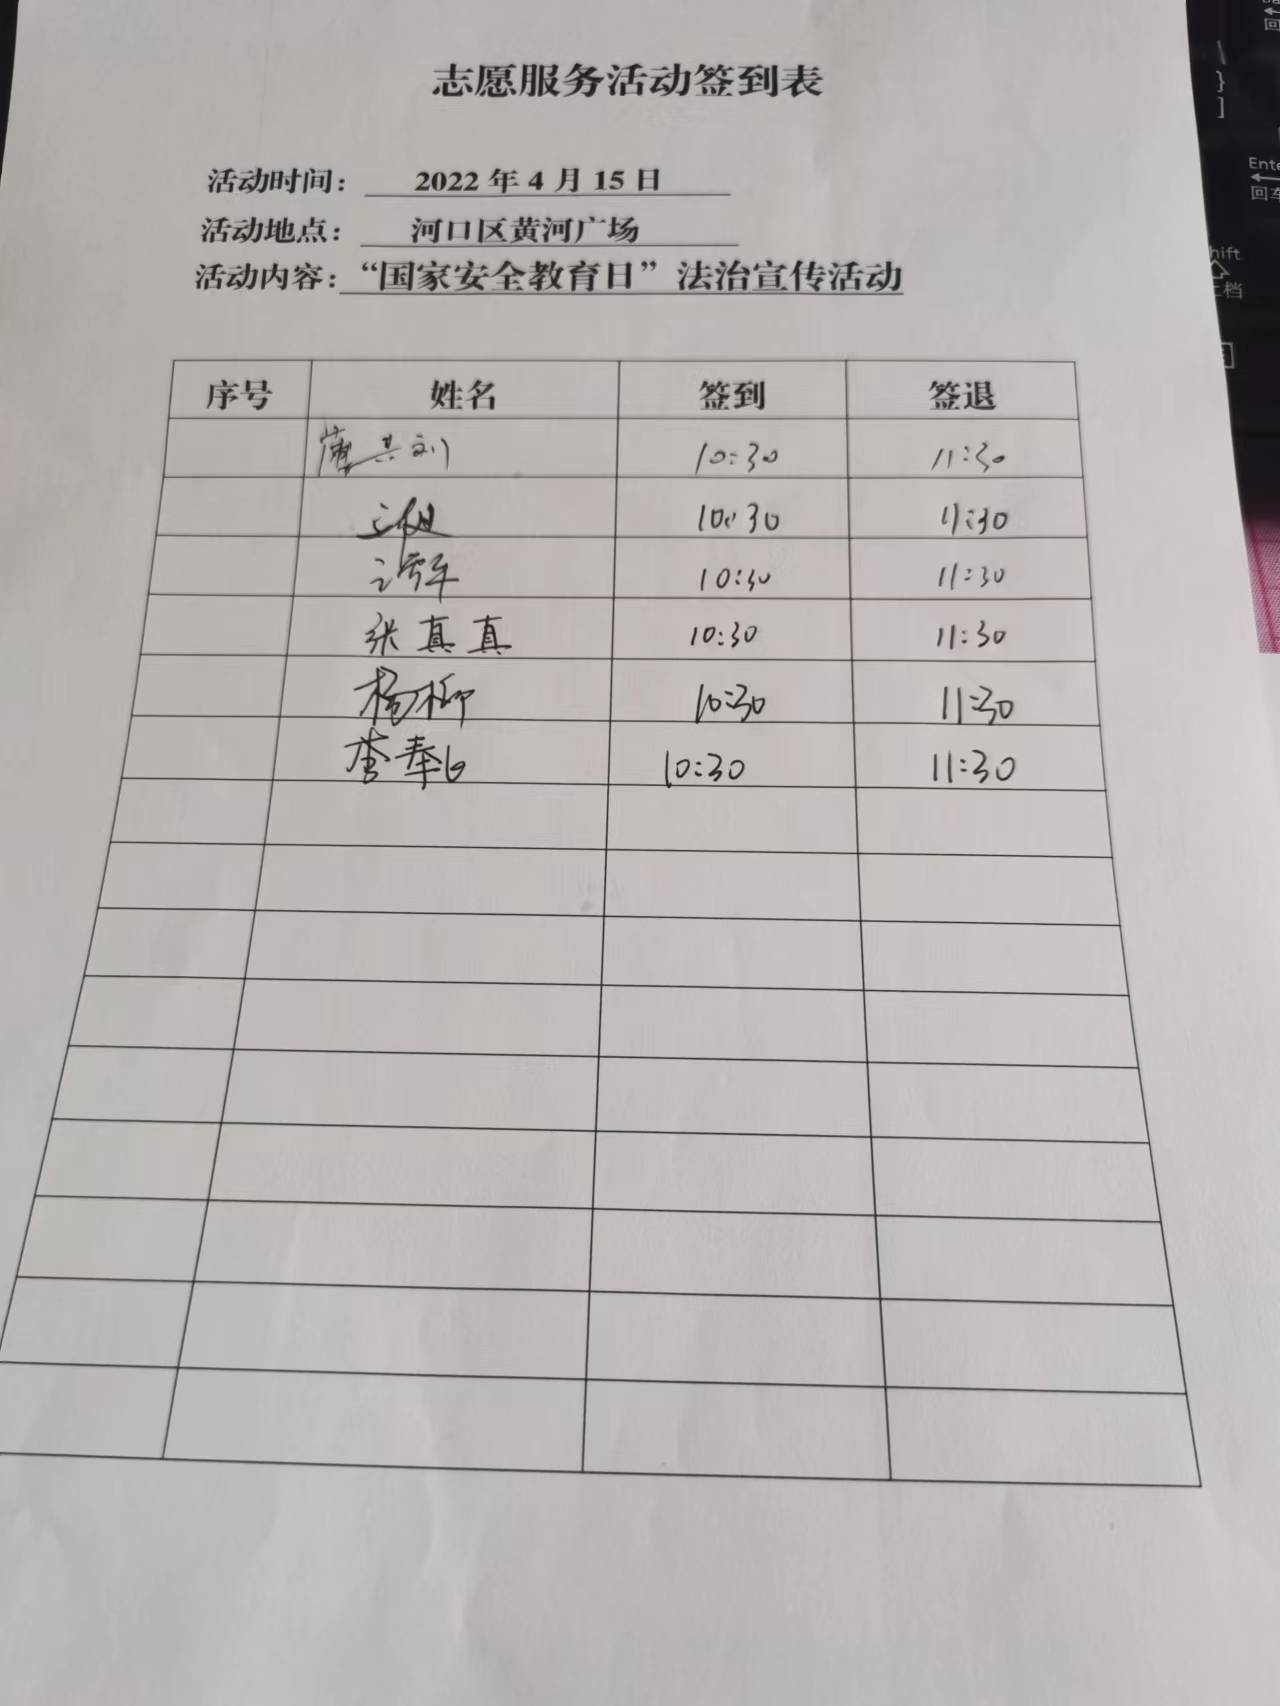 志愿服务活动签到表
活动时间： 2022 年 4 月 15 日
活动地点： 河口区黄河广场
活动内容：“国家安全教育日”法治宣传活动
序号 姓名 签到 签退
10:30 11:30
10:30 11:30
10:30 11:30
张真真 10:30 11:30
杨柳 10:30 11:30
10:30 11:30
Ente
回车
hift
档